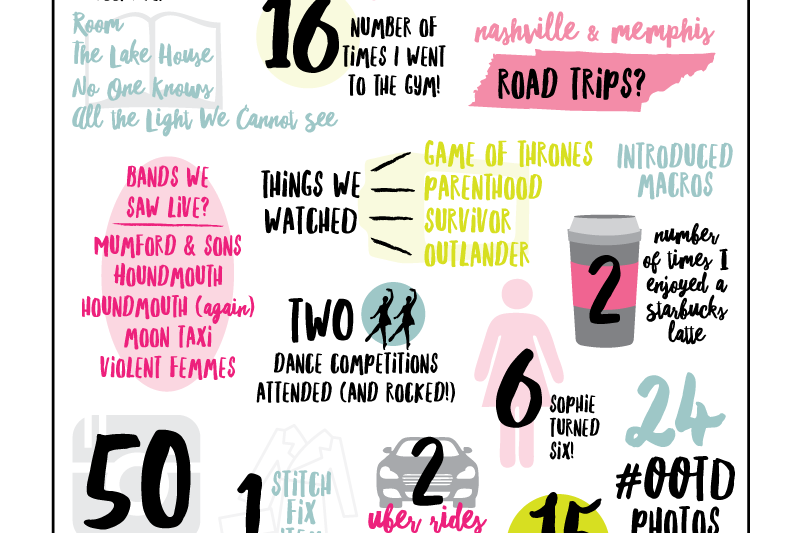 Room
The Lake House
No One Knows
All the Light We Cannot See
16
NUMBER OF
TIMES I WENT
TO THE GYM!
nashville & memphis
ROAD TRIPS?
BANDS WE
SAW LIVE?
MUMFORD & SONS
HOUNDMOUTH
HOUNDMOUTH (again)
MOON TAXI
VIOLENT FEMMES
THINGS WE
WATCHED
GAME OF THRONES
PARENTHOOD
SURVIVOR
OUTLANDER
INTRODUCED
MACROS
2
number
of times I
enjoyed a
starbucks
latte
TWO
DANCE COMPETITIONS
ATTENDED (AND ROCKED!)
6
SOPHIE
TURNED
SIX!
24
#OOTD
PHOTOS
50
1
STITCH
FIX
ITEM
2
uber rides
15